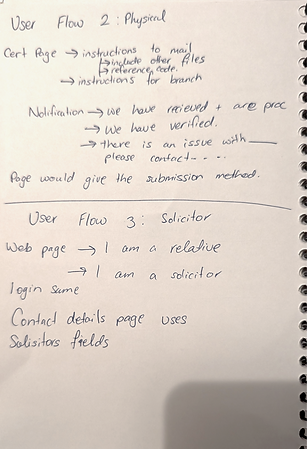 User Flow 2: Physical
Cert Page → instructions to mail
↳ include other files
↳ reference code.
→ instructions for branch
Notification → we have recieved + are proc
→ we have verified.
→ there is an issue with ____
please contact - - . .
Page would give the submission method.
User Flow 3: Solicitor
Web page → I am a relative
→ I am a solicitor
login same
Contact details page uses
Solisitors fields